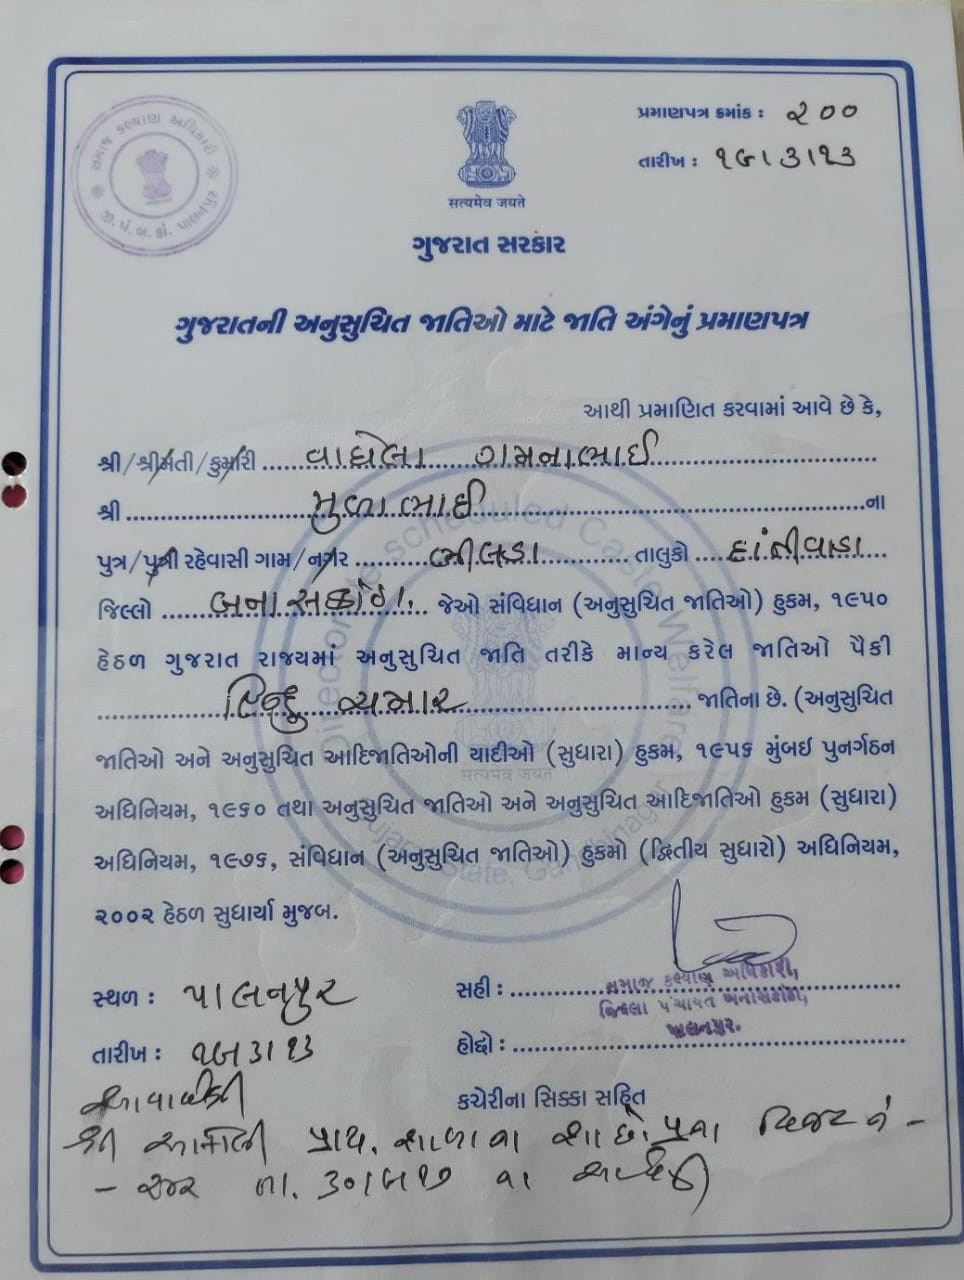 સમાજ કલ્યાણ અધિકારી
જી. પં. બ. કાં. પાલનપુર
પ્રમાણપત્ર ક્રમાંક : ૨૦૦
તારીખ : ૧૫।૩।૧૩
સત્યમેવ જયતે
ગુજરાત સરકાર
ગુજરાતની અનુસુચિત જાતિઓ માટે જાતિ અંગેનું પ્રમાણપત્ર
આથી પ્રમાણિત કરવામાં આવે છે કે,
શ્રી/શ્રીમતી/કુમારી વાઘેલા ગમનાભાઈ
શ્રી મુળાભાઈ ના
પુત્ર/પુત્રી રહેવાસી ગામ/નગર ભીલડા તાલુકો દાંતીવાડા
જિલ્લો બનાસકાંઠા. જેઓ સંવિધાન (અનુસુચિત જાતિઓ) હુકમ, ૧૯૫૦
હેઠળ ગુજરાત રાજ્યમાં અનુસુચિત જાતિ તરીકે માન્ય કરેલ જાતિઓ પૈકી
હિન્દુ ચમાર જાતિના છે. (અનુસુચિત
જાતિઓ અને અનુસુચિત આદિજાતિઓની યાદીઓ (સુધારા) હુકમ, ૧૯૫૬ મુંબઈ પુનર્ગઠન
અધિનિયમ, ૧૯૬૦ તથા અનુસુચિત જાતિઓ અને અનુસુચિત આદિજાતિઓ હુકમ (સુધારા)
અધિનિયમ, ૧૯૭૬, સંવિધાન (અનુસુચિત જાતિઓ) હુકમો (દ્વિતીય સુધારો) અધિનિયમ,
૨૦૦૨ હેઠળ સુધાર્યા મુજબ.
Directorate Scheduled Caste Welfare
Gujarat State, Gandhinagar
સત્યમેવ જયતે
સ્થળ : પાલનપુર
સહી :
સમાજ કલ્યાણ અધિકારી,
જિલ્લા પંચાયત બનાસકાંઠા,
પાલનપુર.
તારીખ : ૧૫।૩।૧૩
હોદ્દો :
કચેરીના સિક્કા સહિત
શ્રી પ્રાથ. શાળાના